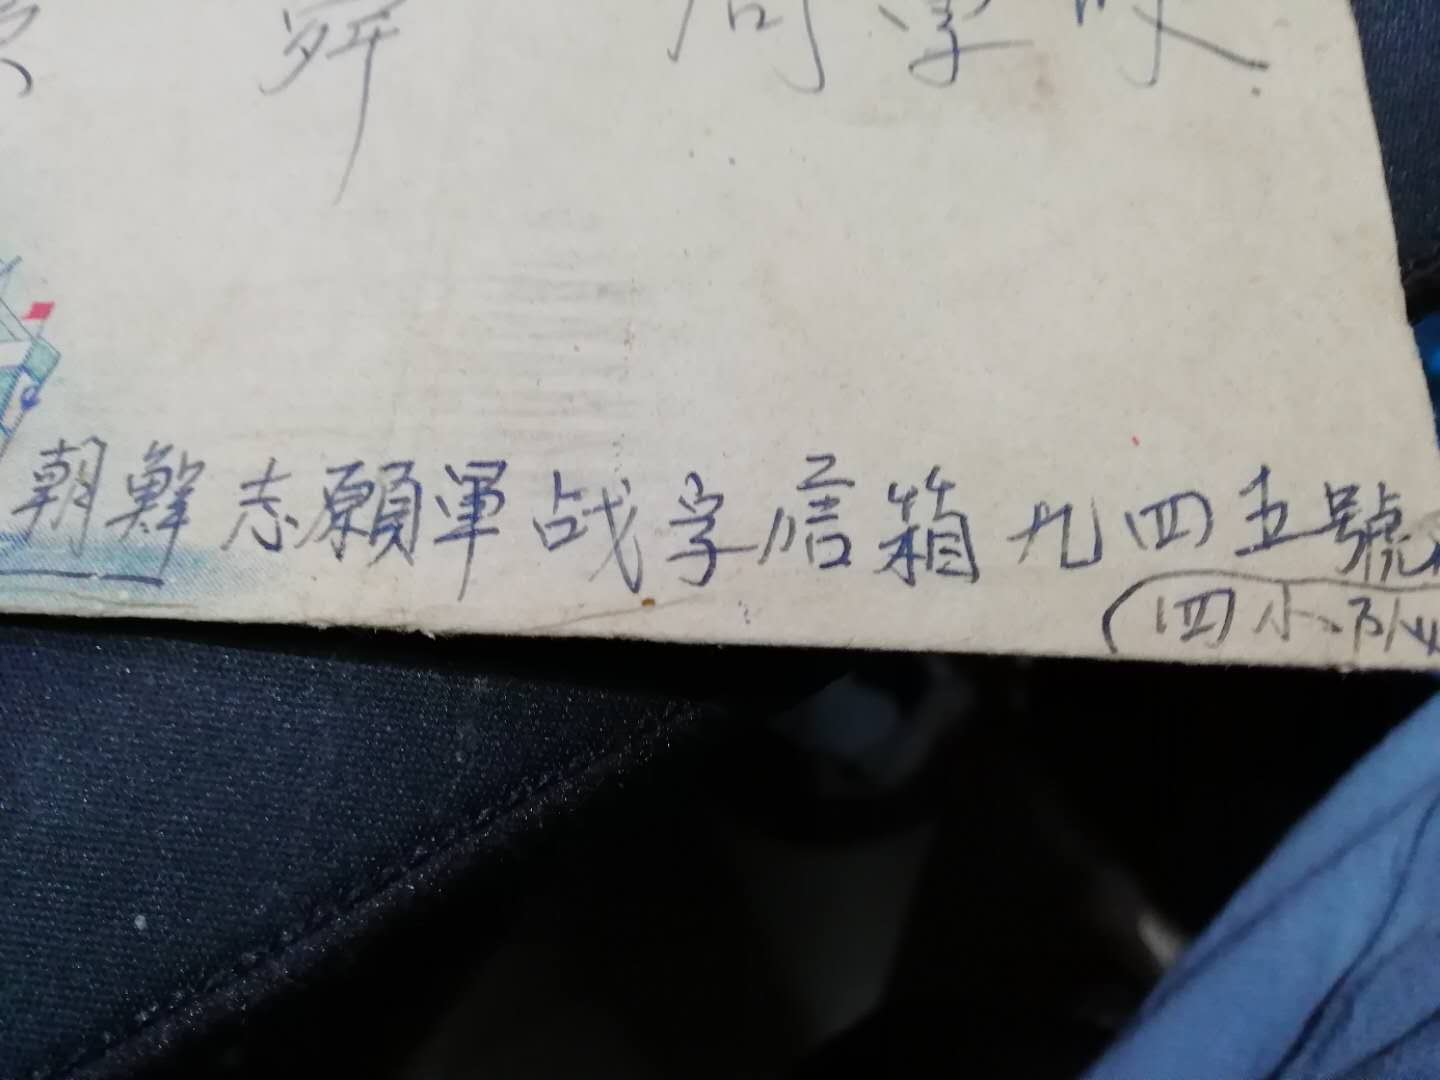 朝鮮志願軍战字信箱九四五號
(四小队